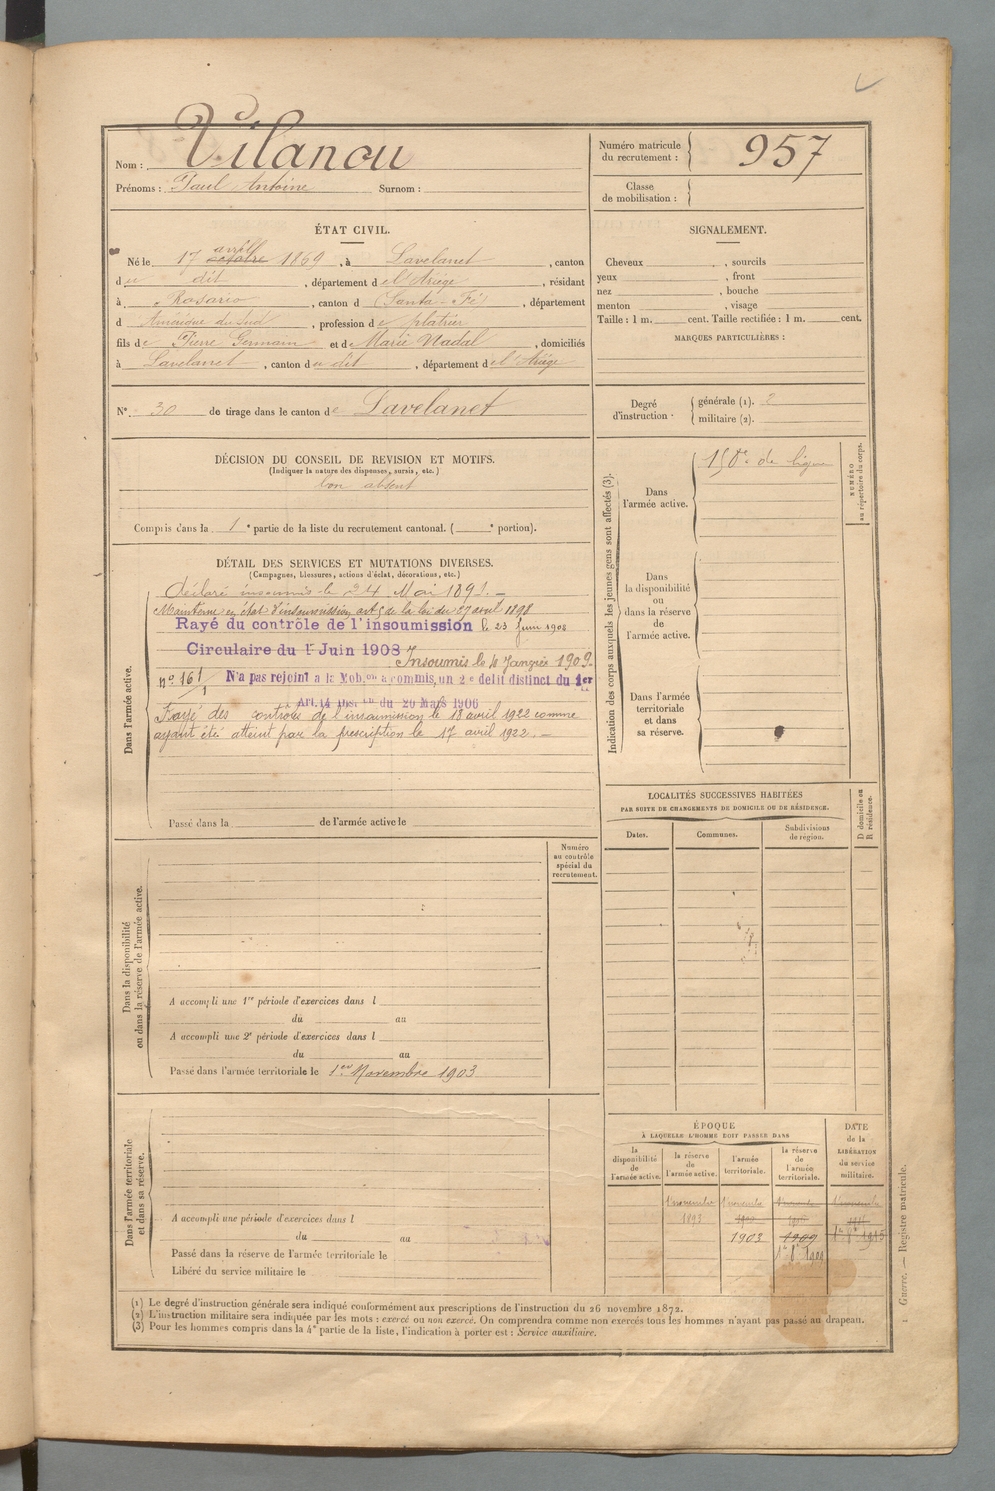 Nom : Vilanou
Prénoms : Paul Antoine Surnom :
Numéro matricule du recrutement : 957
Classe de mobilisation :
ÉTAT CIVIL.
Né le 17 avril octobre 1869, à Lavelanet, canton
du dit, département de l'Ariège, résidant
à Rosario, canton d (Santa-Fé), département
d Amérique du Sud, profession de platrier
fils de Pierre Germain et de Marie Nadal, domiciliés
à Lavelanet, canton du dit, département de l'Ariège
N° 30 de tirage dans le canton de Lavelanet
SIGNALEMENT.
Cheveux , sourcils
yeux , front
nez , bouche
menton , visage
Taille : 1 m. cent. Taille rectifiée : 1 m. cent.
MARQUES PARTICULIÈRES :
Degré d'instruction. générale (1). 2
militaire (2).
DÉCISION DU CONSEIL DE REVISION ET MOTIFS.
(Indiquer la nature des dispenses, sursis, etc.)
bon absent
Compris dans la 1e partie de la liste du recrutement cantonal. ( e portion).
DÉTAIL DES SERVICES ET MUTATIONS DIVERSES.
(Campagnes, blessures, actions d'éclat, décorations, etc.)
Dans l'armée active.
Déclaré insoumis le 24 Mai 1891. —
Maintenu en état d'insoumission art 5 de la loi du 27 avril 1898
Rayé du contrôle de l'insoumission le 23 Juin 1908
Circulaire du 1r Juin 1908 Insoumis le 10 Janvier 1909.
n° 161/1 N'a pas rejoint a la Mob.on a commis un 2e delit distinct du 1er
Art. 14 du 20 Mars 1906
Rayé des contrôles de l'insoumission le 18 avril 1922 comme
ayant été atteint par la prescription le 17 avril 1922. —
Passé dans la de l'armée active le
Indication des corps auxquels les jeunes gens sont affectés (3).
NUMÉRO au répertoire du corps.
Dans l'armée active.
de ligne
Dans la disponibilité ou dans la réserve de l'armée active.
Dans l'armée territoriale et dans sa réserve.
LOCALITÉS SUCCESSIVES HABITÉES
PAR SUITE DE CHANGEMENTS DE DOMICILE OU DE RÉSIDENCE.
Dates. Communes. Subdivisions de région.
D domicile ou R résidence.
Numéro au contrôle spécial du recrutement.
Dans la disponibilité ou dans la réserve de l'armée active.
A accompli une 1re période d'exercices dans l
du au
A accompli une 2e période d'exercices dans l
du au
Passé dans l'armée territoriale le 1er Novembre 1903
Dans l'armée territoriale et dans sa réserve.
A accompli une période d'exercices dans l
du au
Passé dans la réserve de l'armée territoriale le
Libéré du service militaire le
ÉPOQUE
À LAQUELLE L'HOMME DOIT PASSER DANS
DATE de la LIBÉRATION du service militaire.
la disponibilité de l'armée active.
la réserve de l'armée active.
l'armée territoriale.
la réserve de l'armée territoriale.
1 novembre 1 novembre 1 novembre 1 novembre
1893
1903 1909 1r 8e 1915
1r 8e 1909
(1) Le degré d'instruction générale sera indiqué conformément aux prescriptions de l'instruction du 26 novembre 1872.
(2) L'instruction militaire sera indiquée par les mots : exercé ou non exercé. On comprendra comme non exercés tous les hommes n'ayant pas passé au drapeau.
(3) Pour les hommes compris dans la 4e partie de la liste, l'indication à porter est : Service auxiliaire.
Guerre. — Registre matricule.